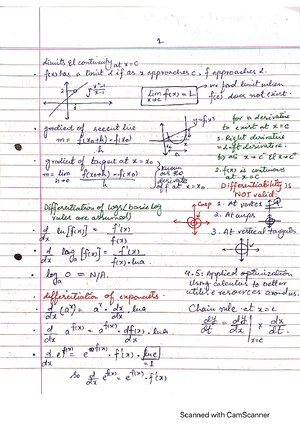 1
Limits & continuity at x=c
f(x) has a limit L if as x approaches c, f approaches L.
lim f(x) = L
x→c
we find limit when
f(c) does not exist.
y=f(x)
• gradient of secant line
m = f(x₀+h) - f(x₀)
h
• gradient of tangent at x = x₀
m = lim f(x₀+h) - f(x₀)
h→0 h
known as the derivate of f at x = x₀
for a derivative
to exist at x=c
1. Right derivative
= Left derivative.
2. f(x) is continuous
at x=c
Differentiability is
NOT valid:
1. At vertex
2. At cusps
3. At vertical tangents
Cusp
Differentiation of Logs (basic log
rules are assumed)
• d/dx ln [f(x)] = f'(x)/f(x)
• d/dx logₐ [f(x)] = f'(x)/f(x)·ln a
• logₐ 0 = N/A.
differentiation of exponents.
• d/dx (aˣ) = aˣ · dx/dx · ln a
• d/dx a^f(x) = a^f(x) · df(x)/dx · ln a
• d/dx e^f(x) = e^f(x) · f'(x) · ln e
=1
So d/dx e^f(x) = e^f(x) · f'(x)
4.5: Applied optimization
Using calculus to better
utilize resources around us.
Chain rule at x=c
dy/dt = dy/dx | x=c × dx/dt
Scanned with CamScanner